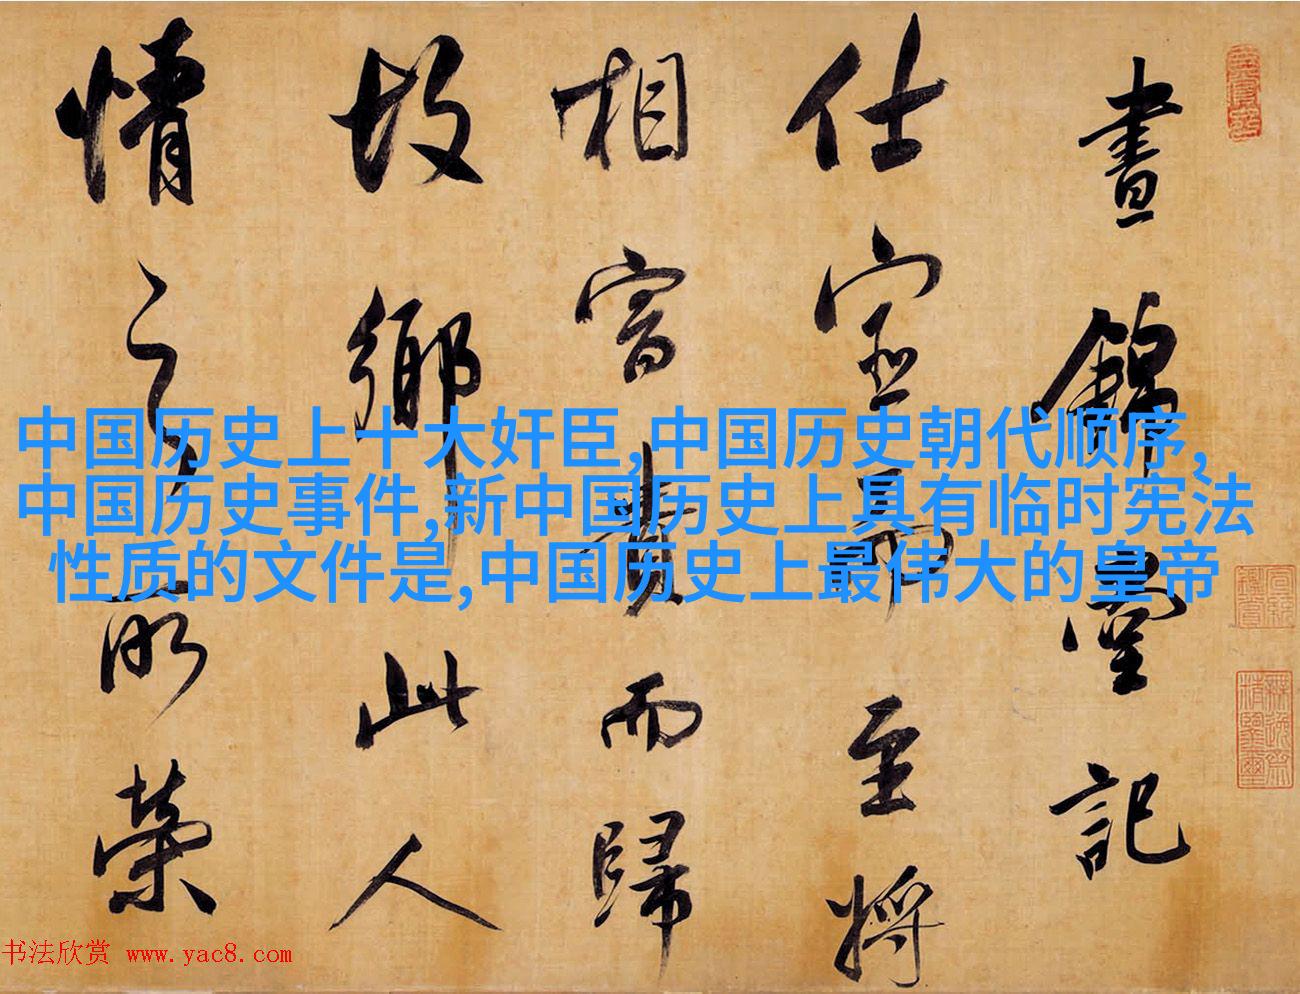 晝錦堂記
仕宦而至將
相富貴而歸
故鄉此人
情之所榮
中国历史上十大奸臣,中国历史朝代顺序,
中国历史事件,新中国历史上具有临时宪法
性质的文件是,中国历史上最伟大的皇帝
书法欣赏 www.yac8.com